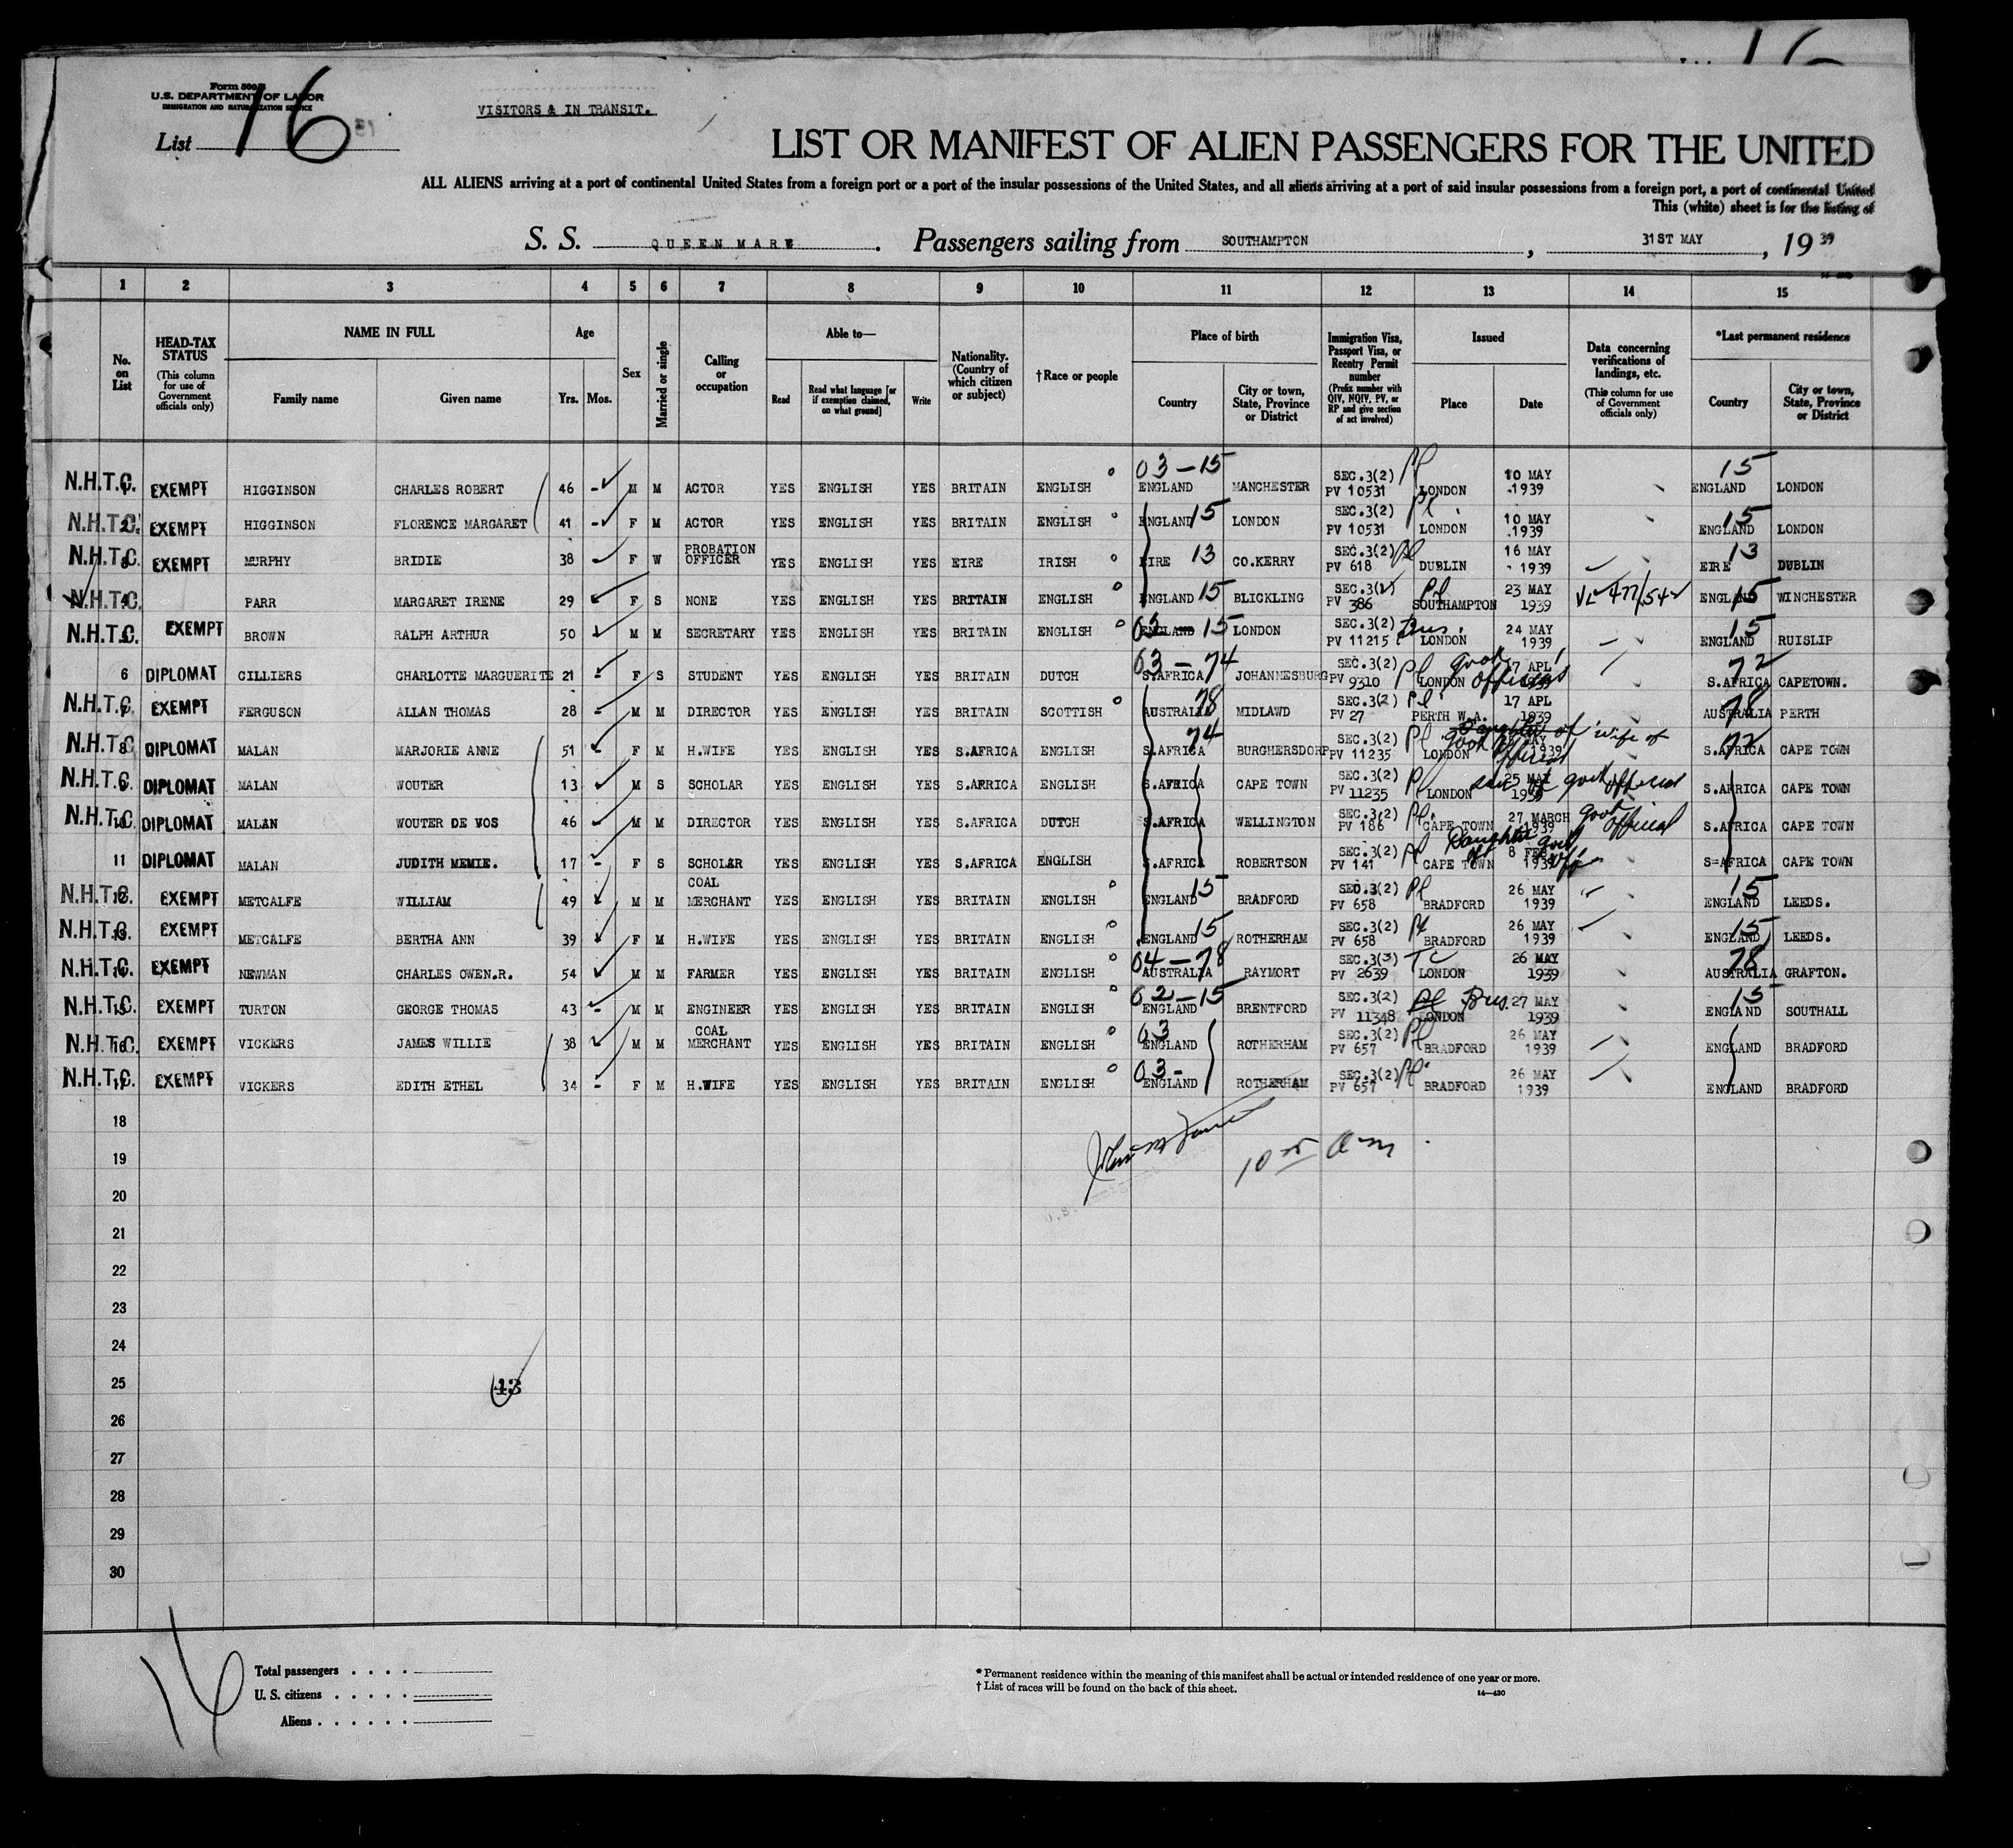 16
Form 500 B
U.S. DEPARTMENT OF LABOR
IMMIGRATION AND NATURALIZATION SERVICE
List 16
VISITORS & IN TRANSIT.
LIST OR MANIFEST OF ALIEN PASSENGERS FOR THE UNITED
ALL ALIENS arriving at a port of continental United States from a foreign port or a port of the insular possessions of the United States, and all aliens arriving at a port of said insular possessions from a foreign port, a port of continental United
This (white) sheet is for the listing of
S. S. QUEEN MARY . Passengers sailing from SOUTHAMPTON , 31ST MAY , 19 39
1 2 3 4 5 6 7 8 9 10 11 12 13 14 15
No. on List
HEAD-TAX STATUS (This column for use of Government officials only)
NAME IN FULL
Family name Given name
Age
Yrs. Mos.
Sex
Married or single
Calling or occupation
Able to—
Read Read what language [or if exemption claimed, on what ground] Write
Nationality. (Country of which citizen or subject)
†Race or people
Place of birth
Country City or town, State, Province or District
Immigration Visa, Passport Visa, or Reentry Permit number (Prefix number with QIV, NQIV, PV, or RP and give section of act involved)
Issued
Place Date
Data concerning verifications of landings, etc. (This column for use of Government officials only)
*Last permanent residence
Country City or town, State, Province or District
N.H.T.C. 1 EXEMPT HIGGINSON CHARLES ROBERT 46 - M M ACTOR YES ENGLISH YES BRITAIN ENGLISH 03-15 ENGLAND MANCHESTER SEC.3(2) PV 10531 Pl LONDON 10 MAY 1939 15 ENGLAND LONDON
N.H.T.C. 2 EXEMPT HIGGINSON FLORENCE MARGARET 41 - F M ACTOR YES ENGLISH YES BRITAIN ENGLISH ENGLAND 15 LONDON SEC.3(2) PV 10531 Pl LONDON 10 MAY 1939 15 ENGLAND LONDON
N.H.T.C. 3 EXEMPT MURPHY BRIDIE 38 F W PROBATION OFFICER YES ENGLISH YES EIRE IRISH EIRE 13 CO.KERRY SEC.3(2) PV 618 Pl DUBLIN 16 MAY 1939 13 EIRE DUBLIN
N.H.T.C. 4 PARR MARGARET IRENE 29 F S NONE YES ENGLISH YES BRITAIN ENGLISH ENGLAND 15 BLICKLING SEC.3(2) PV 386 Pl SOUTHAMPTON 23 MAY 1939 VL 477/542 15 ENGLAND WINCHESTER
N.H.T.C. 5 EXEMPT BROWN RALPH ARTHUR 50 M M SECRETARY YES ENGLISH YES BRITAIN ENGLISH 03-15 ENGLAND LONDON SEC.3(2) PV 11215 Bus. LONDON 24 MAY 1939 15 ENGLAND RUISLIP
6 DIPLOMAT CILLIERS CHARLOTTE MARGUERITE 21 - F S STUDENT YES ENGLISH YES BRITAIN DUTCH 03-74 S.AFRICA JOHANNESBURG SEC.3(2) PV 9310 Pl LONDON 17 APL 1939 Govt officials 72 S.AFRICA CAPETOWN.
N.H.T.C. 7 EXEMPT FERGUSON ALLAN THOMAS 28 - M M DIRECTOR YES ENGLISH YES BRITAIN SCOTTISH 78 AUSTRALIA MIDLAWD SEC.3(2) PV 27 Pl PERTH W.A. 17 APL 1939 78 AUSTRALIA PERTH
N.H.T.C. 8 DIPLOMAT MALAN MARJORIE ANNE 51 F M H.WIFE YES ENGLISH YES S.AFRICA ENGLISH 74 S.AFRICA BURGHERSDORP SEC.3(2) PV 11235 Pl LONDON MAY 1939 wife of govt official 72 S.AFRICA CAPE TOWN
N.H.T.C. 9 DIPLOMAT MALAN WOUTER 13 M S SCHOLAR YES ENGLISH YES S.AFRICA ENGLISH S.AFRICA CAPE TOWN SEC.3(2) PV 11235 Pl LONDON 25 MAY 1939 son of govt official S.AFRICA CAPE TOWN
N.H.T.C. 10 DIPLOMAT MALAN WOUTER DE VOS 46 M M DIRECTOR YES ENGLISH YES S.AFRICA DUTCH S.AFRICA WELLINGTON SEC.3(2) PV 186 Pl. CAPE TOWN 27 MARCH 1939 govt official S.AFRICA CAPE TOWN
11 DIPLOMAT MALAN JUDITH MEMIE. 17 - F S SCHOLAR YES ENGLISH YES S.AFRICA ENGLISH S.AFRICA ROBERTSON SEC.3(2) PV 141 Pl CAPE TOWN 8 FEB 1939 Daughter of govt off S=AFRICA CAPE TOWN
N.H.T.C. 12 EXEMPT METCALFE WILLIAM 49 M M COAL MERCHANT YES ENGLISH YES BRITAIN ENGLISH 15 ENGLAND BRADFORD SEC.3(2) PV 658 Pl BRADFORD 26 MAY 1939 15 ENGLAND LEEDS.
N.H.T.C. 13 EXEMPT METCALFE BERTHA ANN 39 F M H.WIFE YES ENGLISH YES BRITAIN ENGLISH 15 ENGLAND ROTHERHAM SEC.3(2) PV 658 Pl BRADFORD 26 MAY 1939 15 ENGLAND LEEDS.
N.H.T.C. 14 EXEMPT NEWMAN CHARLES OWEN.R. 54 M M FARMER YES ENGLISH YES BRITAIN ENGLISH 04-78 AUSTRALIA RAYMORT SEC.3(3) PV 2639 TC LONDON 26 MAY 1939 78 AUSTRALIA GRAFTON.
N.H.T.C. 15 EXEMPT TURTON GEORGE THOMAS 43 - M M ENGINEER YES ENGLISH YES BRITAIN ENGLISH 02-15 ENGLAND BRENTFORD SEC.3(2) PV 11348 Pl Bus. LONDON 27 MAY 1939 15 ENGLAND SOUTHALL
N.H.T.C. 16 EXEMPT VICKERS JAMES WILLIE 38 M M COAL MERCHANT YES ENGLISH YES BRITAIN ENGLISH 03 ENGLAND ROTHERHAM SEC.3(2) PV 657 Pl BRADFORD 26 MAY 1939 ENGLAND BRADFORD
N.H.T.C. 17 EXEMPT VICKERS EDITH ETHEL 34 - F M H.WIFE YES ENGLISH YES BRITAIN ENGLISH 03- ENGLAND ROTHERHAM SEC.3(2) PV 657 Pl BRADFORD 26 MAY 1939 ENGLAND BRADFORD
18
19 10 am
20
21
22
23
24
25 13
26
27
28
29
30
16
Total passengers . . . .
U. S. citizens . . . . .
Aliens . . . . . .
* Permanent residence within the meaning of this manifest shall be actual or intended residence of one year or more.
† List of races will be found on the back of this sheet.
14—430